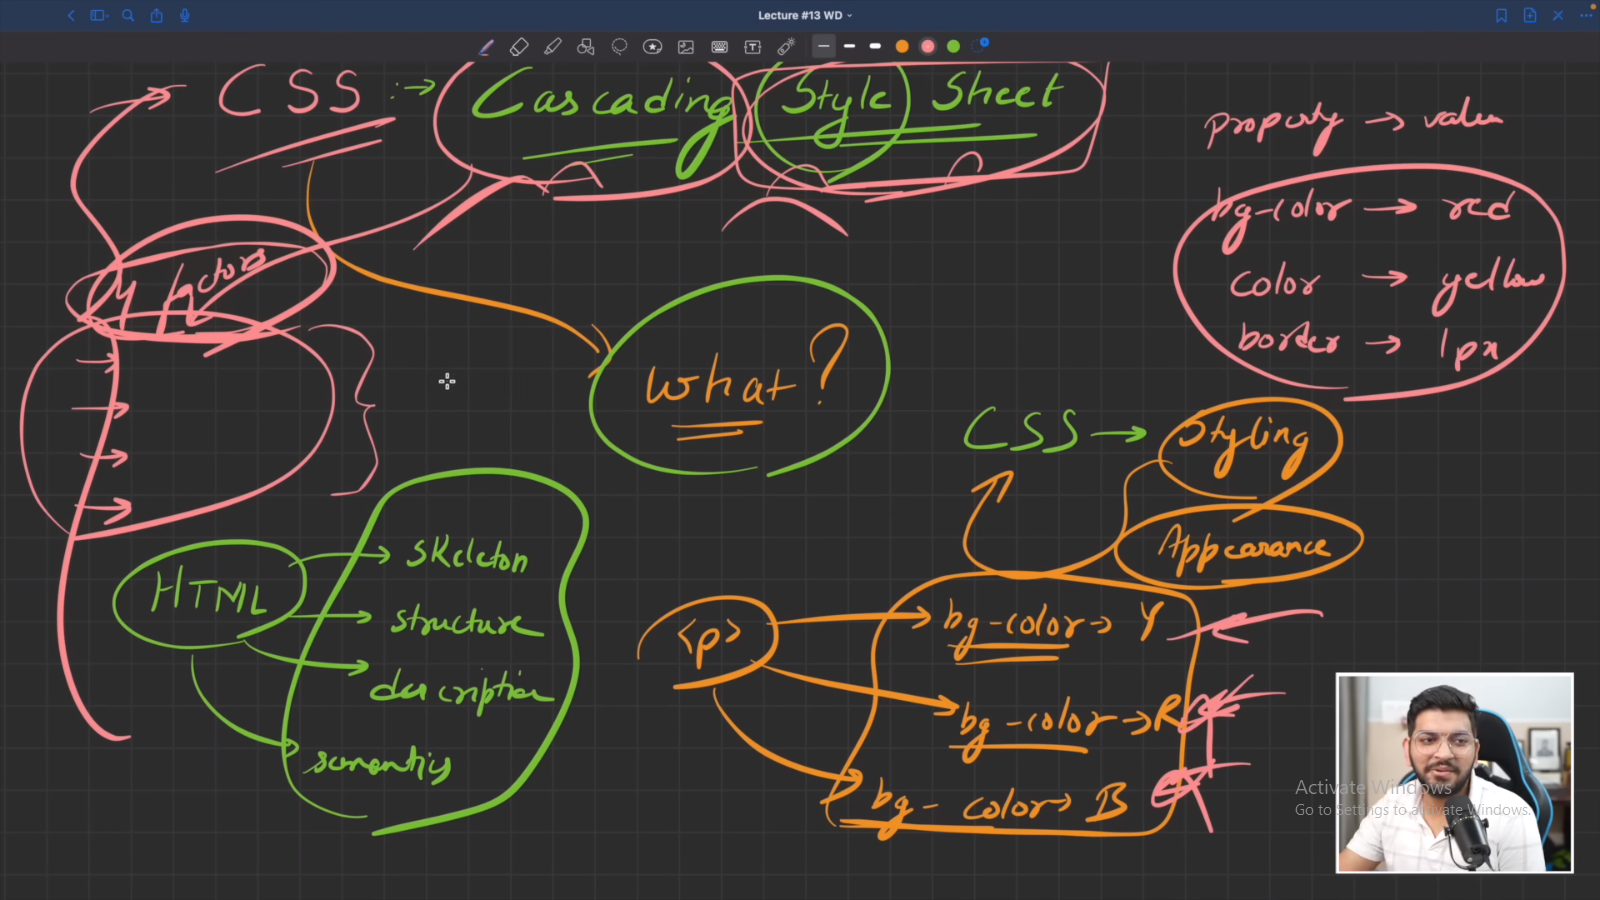 Lecture #13 WD
CSS :→ Cascading Style Sheet
property → value
bg-color → red
color → yellow
border → 1px
4 factors
What?
CSS → Styling
Appearance
HTML
skeleton
structure
description
semantics
<p>
bg-color → Y
bg-color → R
bg-color → B
Activate Windows
Go to Settings to activate Windows.